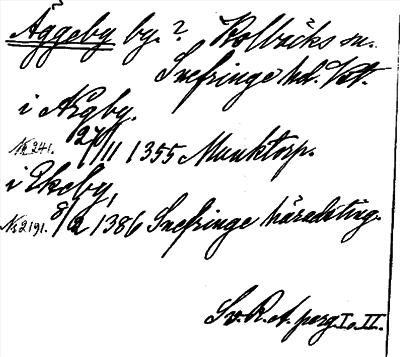 Äggeby by. ? Kolbäcks sn.
Snefringe hd. Vstm.
i Ægby.
№ 241. 27/11 1355 Munktorp.
i Ekeby,
№ 2191. 8/2 1386 Snefringe häradsting.
Sv. R. A. perg. I o. II.